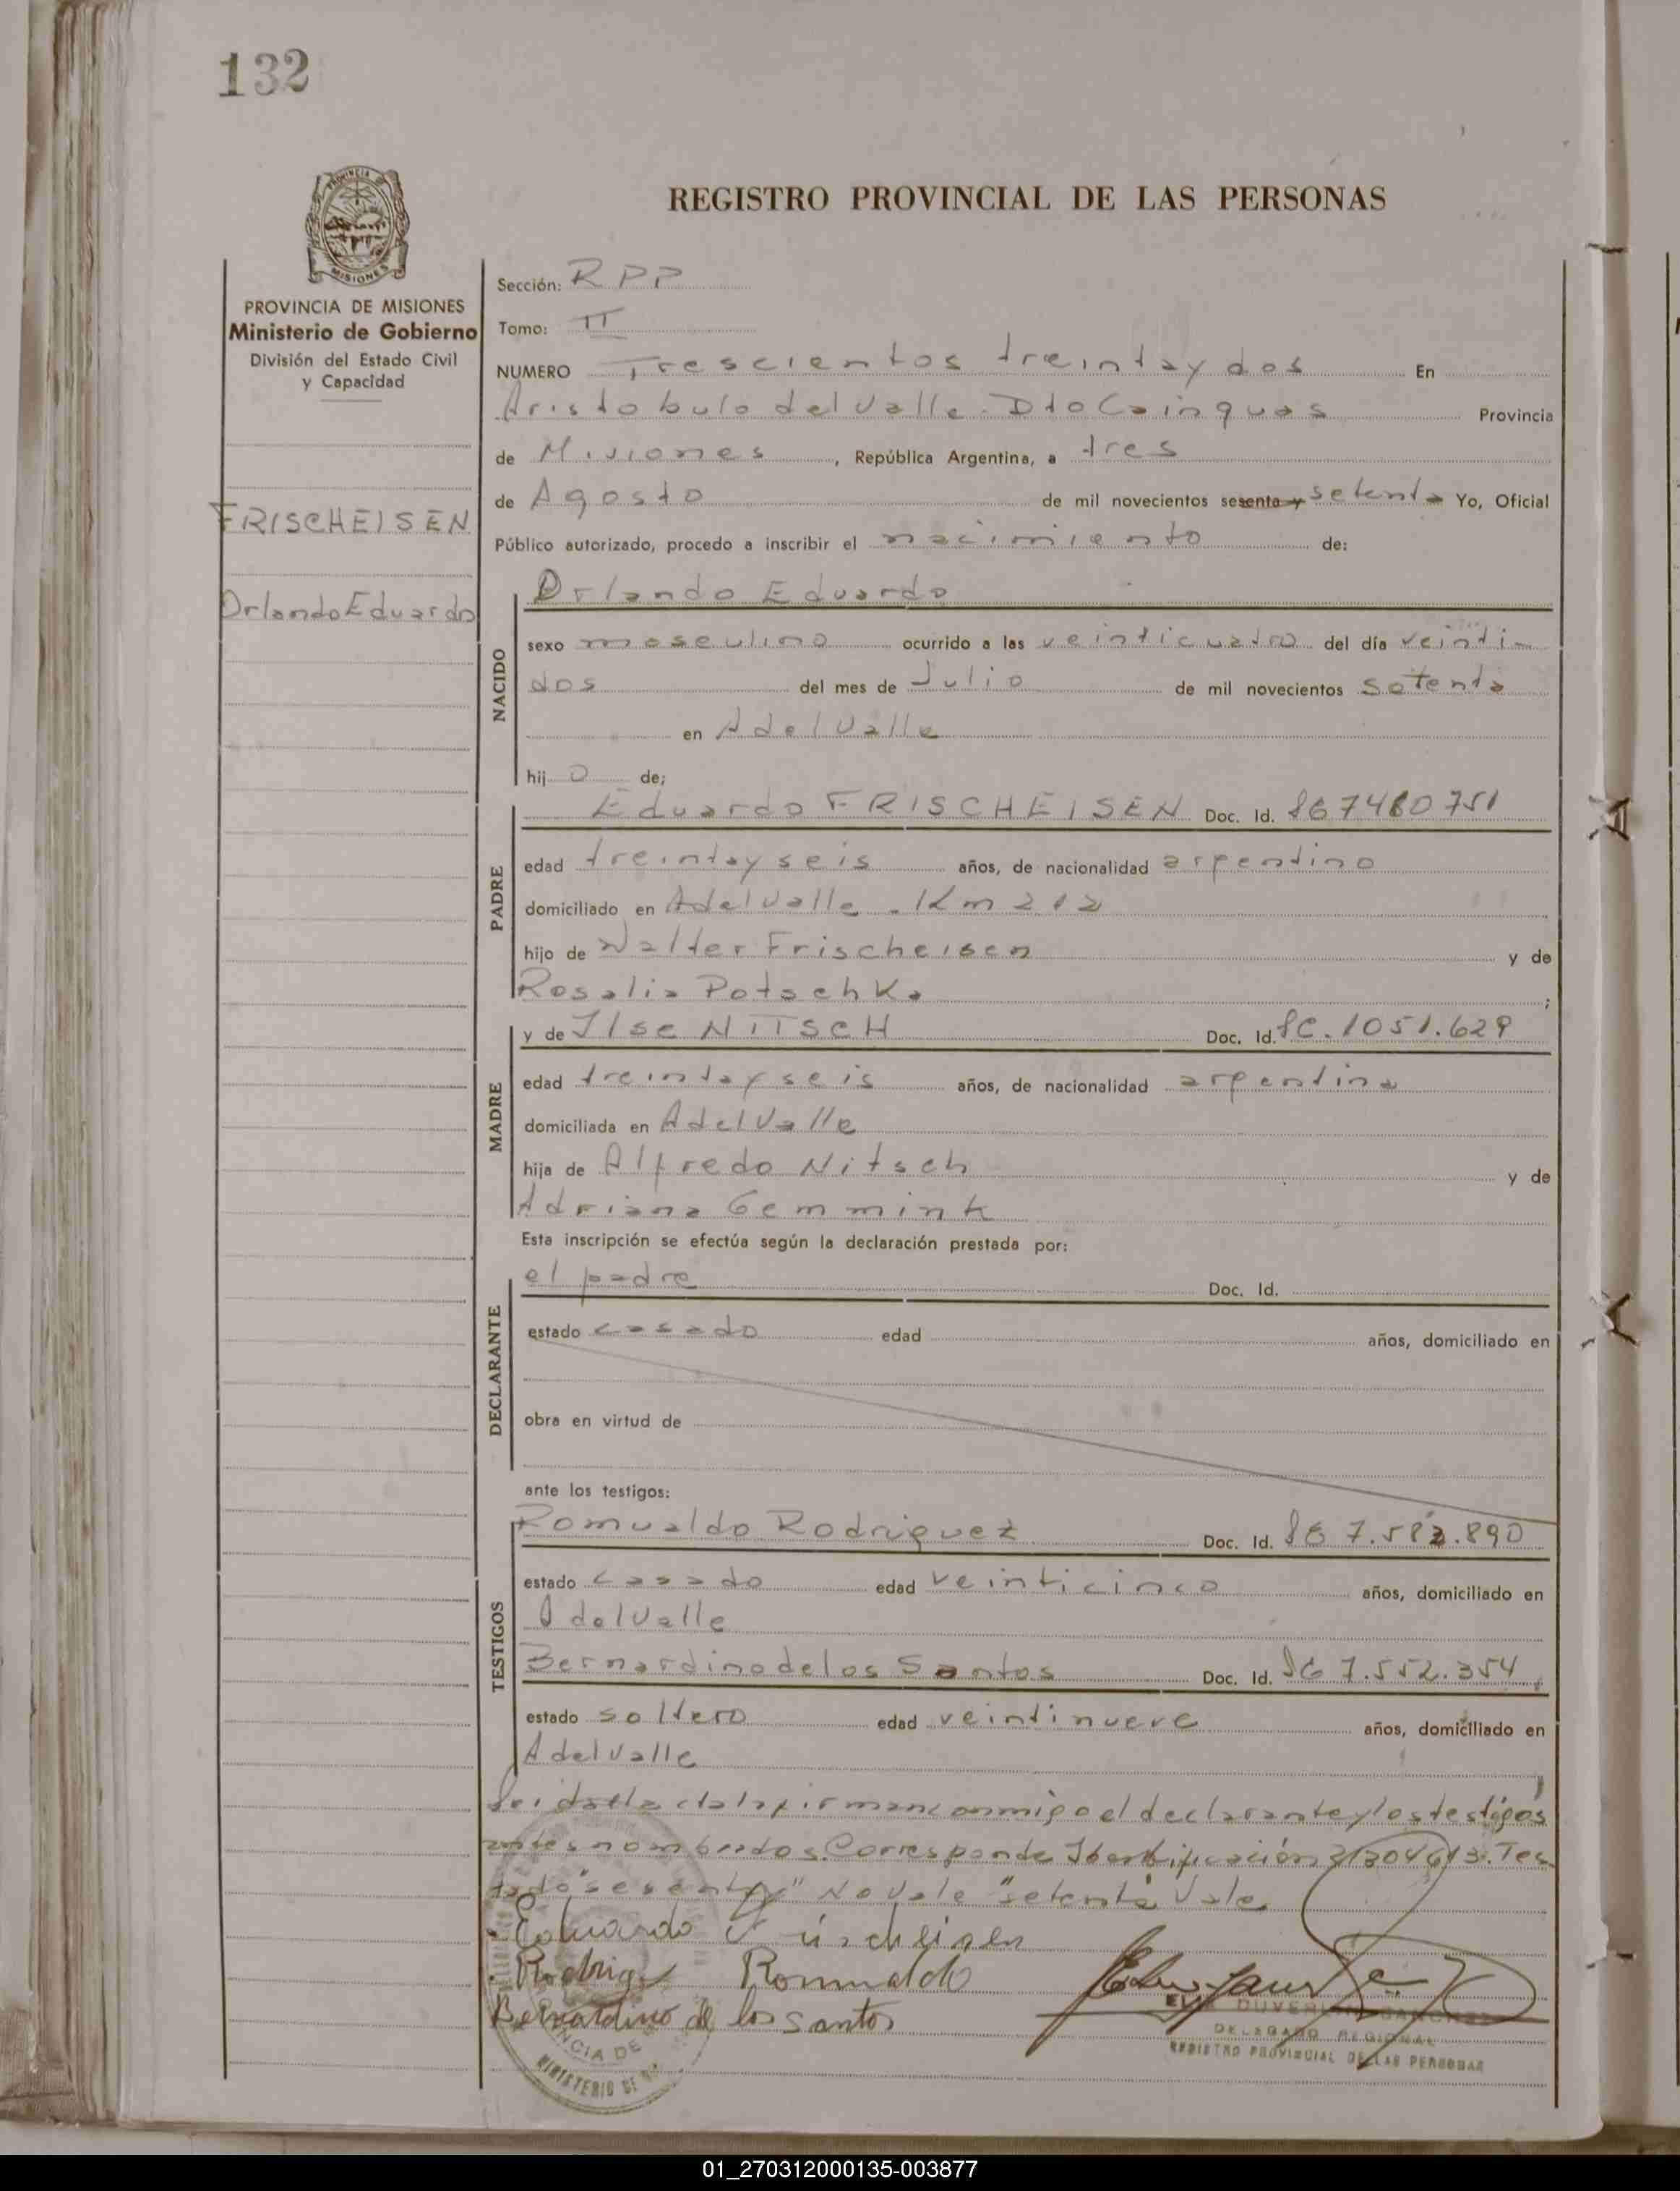 132
PROVINCIA DE
MISIONES
REGISTRO PROVINCIAL DE LAS PERSONAS
PROVINCIA DE MISIONES
Ministerio de Gobierno
División del Estado Civil
y Capacidad
FRISCHEISEN
Orlando Eduardo
Sección: RPP
Tomo: II
NUMERO Trescientos treinta y dos En
Aristobulo del Valle. Dto Cainguas Provincia
de Misiones, República Argentina, a tres
de Agosto de mil novecientos sesenta y setenta Yo, Oficial
Público autorizado, procedo a inscribir el nacimiento de:
NACIDO
Orlando Eduardo
sexo masculino ocurrido a las veinticuatro del día veinti-
dos del mes de Julio de mil novecientos setenta
en A del Valle
hij o de;
PADRE
Eduardo FRISCHEISEN Doc. Id. 7480751
edad treinta y seis años, de nacionalidad argentino
domiciliado en A del Valle . Km 212
hijo de Walter Frischeisen y de
Rosalia Potschka ;
MADRE
y de Ilse NITSCH Doc. Id. 1051.629
edad treinta y seis años, de nacionalidad argentina
domiciliada en A del Valle
hija de Alfredo Nitsch y de
Adriana Gemmink
Esta inscripción se efectúa según la declaración prestada por:
DECLARANTE
el padre Doc. Id.
estado casado edad años, domiciliado en
obra en virtud de
ante los testigos:
TESTIGOS
Romualdo Rodriguez Doc. Id. 7.582.890
estado casado edad veinticinco años, domiciliado en
A del Valle
Bernardino de los Santos Doc. Id. 7.552.354
estado soltero edad veintinueve años, domiciliado en
A del Valle
Leida el acta la firman conmigo el declarante y los testigos
antes nombrados. Corresponde Identificación Tes
tado "sesenta y" No vale "setenta" Vale
Eduardo Frischeisen
Rodrigez Romualdo
Bernardino de los santos
DELEGADO REGIONAL
REGISTRO PROVINCIAL DE LAS PERSONAS
MINISTERIO DE
01_270312000135-003877